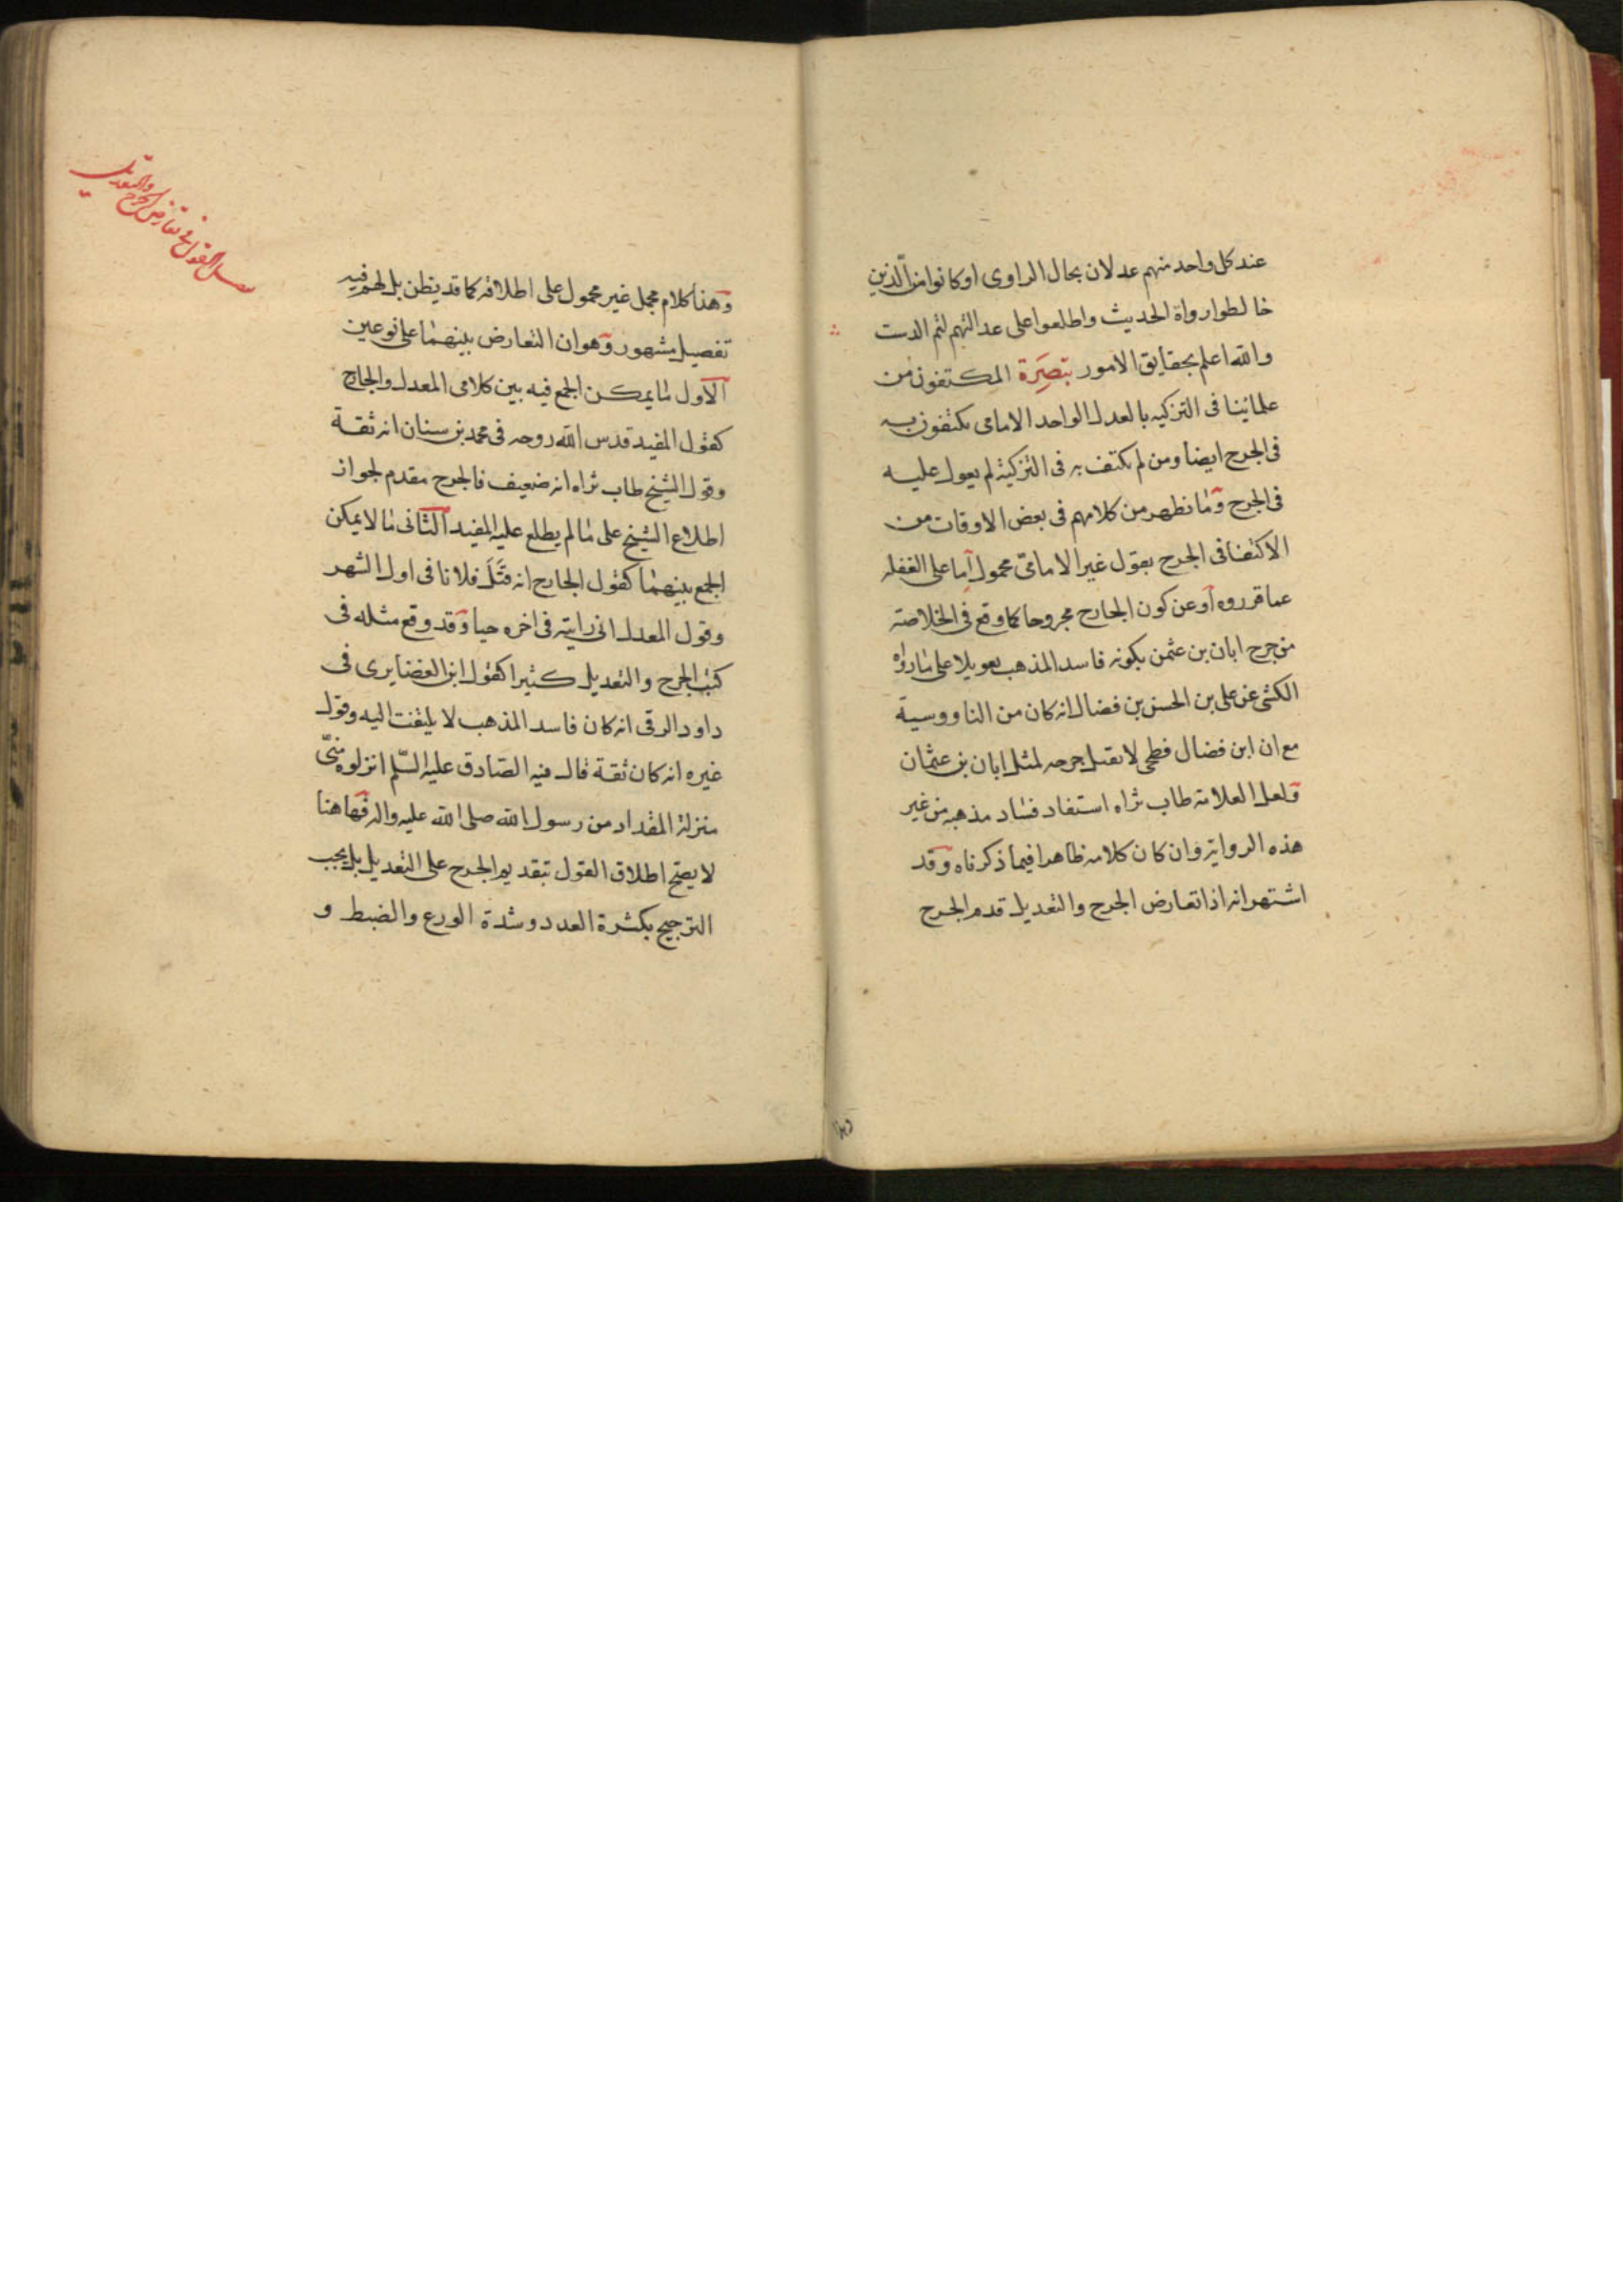 عند كل واحد منهم عدلان بحال الراوى او كانوا من الّذين
خالطوا رواة الحديث واطلعوا على عدالتهم لتم الدست
والله اعلم بحقايق الامور تبصرة المكتفون من
علمائنا فى التزكيه بالعدل الواحد الامامى يكتفون به
فى الجرح ايضا ومن لم يكتف به فى التزكية لم يعول عليه
فى الجرح وما نظهر من كلامهم فى بعض الاوقات من
الاكتفا فى الجرح بقول غير الامامىّ محمول اما على الغفله
عما قرروه او عن كون الجارح مجروحا كما وقع فى الخلاصة
من جرح ابان بن عثمن بكونه فاسد المذهب تعويلا على ما رواه
الكشى عن على بن الحسن بن فضال انه كان من الناووسية
مع ان ابن فضال فطحى لا تقبل جرحه لمثل ابان بن عثمان
ولعل العلامة طاب ثراه استفاد فساد مذهبه من غير
هذه الرواية وان كان كلامه ظاهرا فيما ذكرناه وقد
اشتهر انه اذا تعارض الجرح والتعديل قدم الجرح
القول فى تعارض الجرح والتعديل
وهذا كلام مجمل غير محمول على اطلاقه كما قد يظن بل لهم فيه
تفصيل مشهور وهو ان التعارض بينهما على نوعين
الاول ما يمكن الجمع فيه بين كلامى المعدل والجارح
كقول المفيد قدس الله روحه فى محمد بن سنان انه ثقة
وقول الشيخ طاب ثراه انه ضعيف فالجرح مقدم لجواز
اطلاع الشيخ على ما لم يطلع عليه المفيد الثانى ما لا يمكن
الجمع بينهما كقول الجارح انه قَتَلَ فلانا فى اول الشهر
وقول المعدل انى رايته فى اخره حيا وقد وقع مثله فى
كتب الجرح والتعديل كثيرا كقول ابن الغضايرى فى
داود الرقى انه كان فاسد المذهب لا يلتفت اليه وقول
غيره انه كان ثقة قال فيه الصّادق عليه السّلم انزلوه منّى
منزلة المقداد من رسول الله صلى الله عليه واله فها هنا
لا يصح اطلاق القول بتقديم الجرح على التعديل بل يجب
الترجيح بكثرة العدد وشدة الورع والضبط و